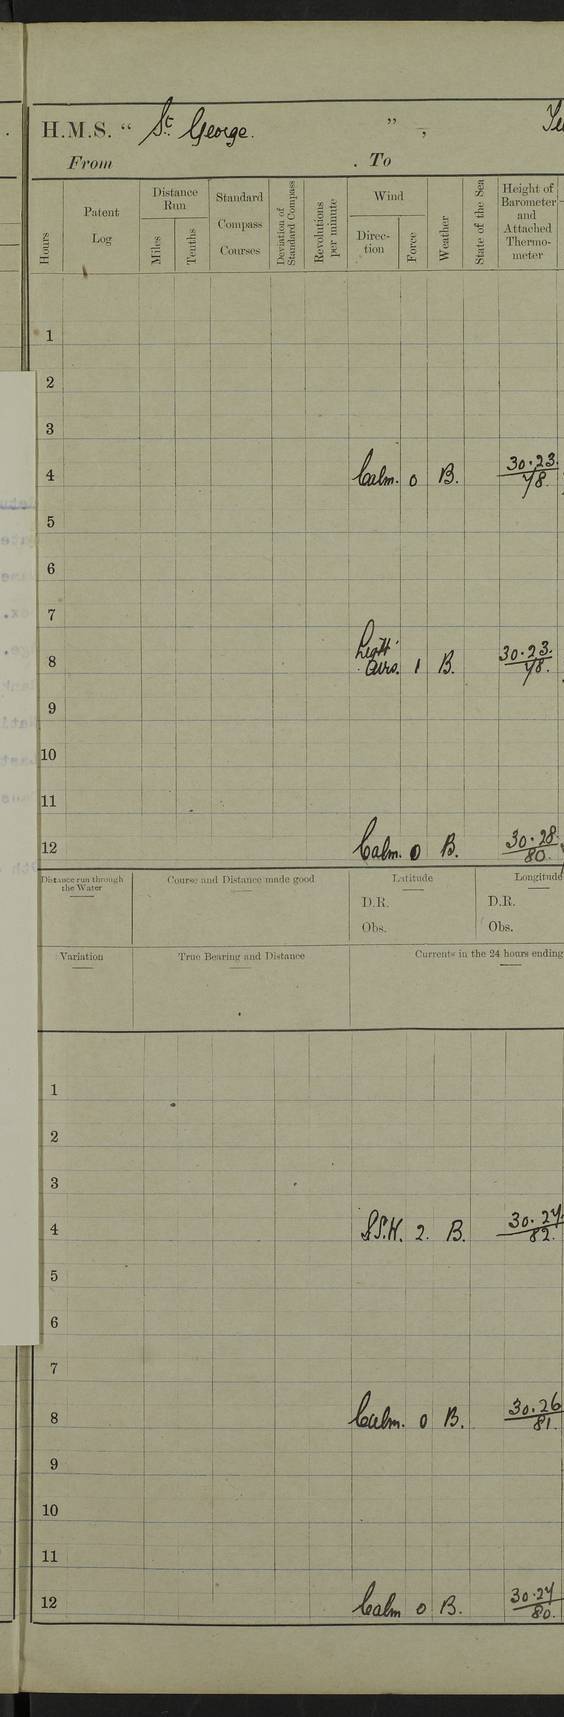 H.M.S. “ St. George. ” ,
From . To
Hours
Patent Log
Distance Run
Miles
Tenths
Standard Compass Courses
Deviation of Standard Compass
Revolutions per minute
Wind
Direc- tion
Force
Weather
State of the Sea
Height of Barometer and Attached Thermo- meter
1
2
3
4 Calm. 0 B. 30.23. 78.
5
6
7
8 Light Airs. 1 B. 30.23. 78.
9
10
11
12 Calm. 0 B. 30.28. 80.
Distance run through the Water
Course and Distance made good
Latitude
Longitude
D.R. D.R.
Obs. Obs.
Variation
True Bearing and Distance
Currents in the 24 hours ending
1
2
3
4 2. B. 30.27. 82.
5
6
7
8 Calm. 0 B. 30.26 81.
9
10
11
12 Calm 0 B. 30.27 80.